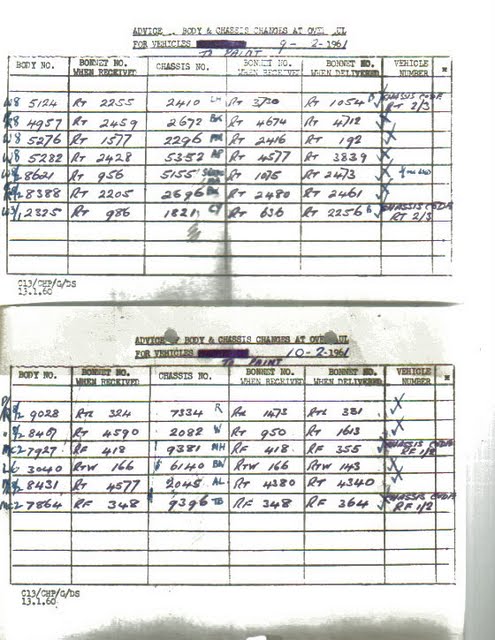 ADVICE BODY & CHASSIS CHANGES AT OVERHAUL
FOR VEHICLES 9-2-1961
TO PAINT
BODY NO. BONNET NO. WHEN RECEIVED CHASSIS NO. BONNET NO. WHEN RECEIVED BONNET NO. WHEN DELIVERED VEHICLE NUMBER *
W8 5124 RT 2255 2410 LH RT 3730 RT 1054 B CHASSIS CODE RT 2/3
4957 RT 2459 2672 BK RT 4674 RT 4712
W8 5276 RT 1577 2296 RT 2416 RT 192
W8 5282 RT 2428 5352 AP RT 4577 RT 3839
8621 RT 956 5155 RT 1075 RT 2473
8388 RT 2205 2696 BK RT 2480 RT 2461
2325 RT 986 1821 CY RT 636 RT 2256 B CHASSIS CODE RT 2/3
C13/CHP/G/DS
13.1.60
ADVICE BODY & CHASSIS CHANGES AT OVERHAUL
FOR VEHICLES 10-2-1961
TO PAINT
BODY NO. BONNET NO. WHEN RECEIVED CHASSIS NO. BONNET NO. WHEN RECEIVED BONNET NO. WHEN DELIVERED VEHICLE NUMBER *
9028 RTL 324 7334 R RTL 1473 RTL 381
8407 RT 4590 2082 W RT 950 RT 1613
7927 RF 418 9381 NH RF 418 RF 355 CHASSIS CODE RF 1/2
L6 3040 RTW 166 6140 BN RTW 166 RTW 143
8431 RT 4577 2045 AL RT 4380 RT 4340
7864 RF 348 9396 TB RF 348 RF 364 CHASSIS CODE RF 1/2
C13/CHP/G/DS
13.1.60